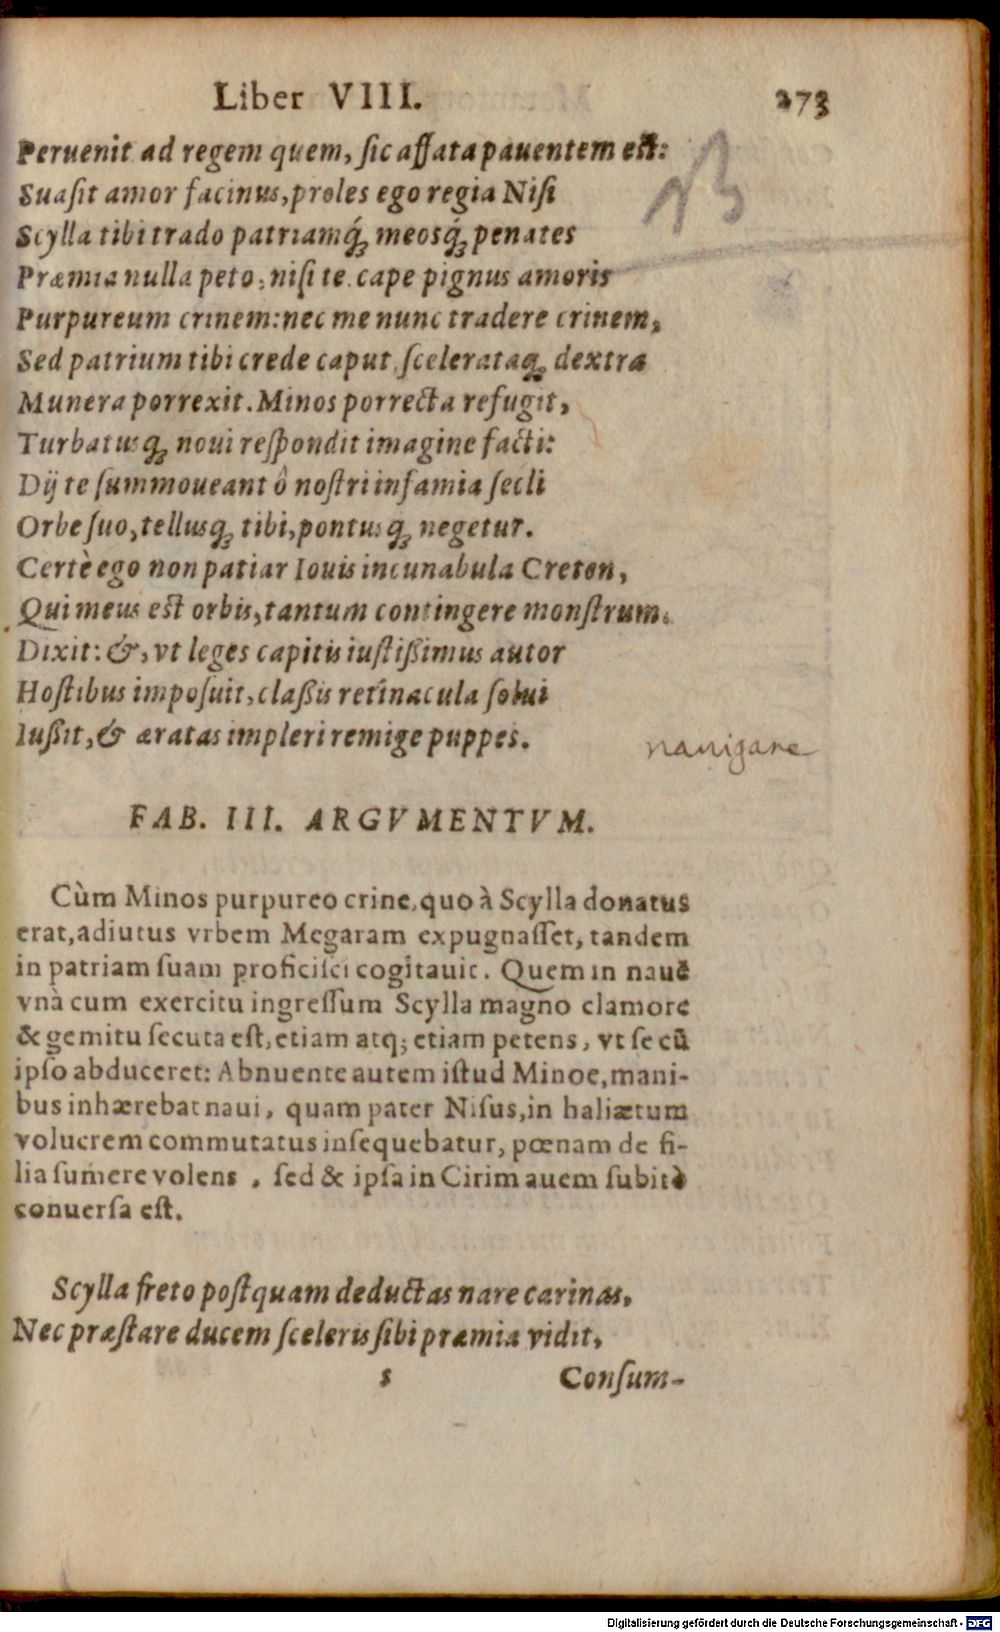 Liber VIII. 273
Peruenit ad regem quem, ſic affata pauentem eſt:
Suaſit amor facinus, proles ego regia Niſi
Scylla tibi trado patriamq́ꝫ meosq́ꝫ penates
Præmia nulla peto, niſi te. cape pignus amoris
Purpureum crinem: nec me nunc tradere crinem,
Sed patrium tibi crede caput, ſcelerataqꝫ dextra
Munera porrexit. Minos porrecta refugit,
Turbatusqꝫ noui reſpondit imagine facti:
Dij te ſummoueant ô noſtri infamia ſecli
Orbe ſuo, tellusqꝫ tibi, pontusqꝫ negetur.
Certè ego non patiar Iouis incunabula Creten,
Qui meus eſt orbis, tantum contingere monſtrum.
Dixit: &, vt leges capitis iuſtißimus autor
Hoſtibus impoſuit, claßis retinacula ſolui
Iußit, & æratas impleri remige puppes.
nauigare
FAB. III. ARGVMENTVM.
Cùm Minos purpureo crine, quo à Scylla donatus
erat, adiutus vrbem Megaram expugnaſſet, tandem
in patriam ſuam proficiſci cogitauit. Quem in nauē
vnà cum exercitu ingreſſum Scylla magno clamore
& gemitu ſecuta eſt, etiam atq; etiam petens, vt ſe cū
ipſo abduceret: Abnuente autem iſtud Minoe, mani-
bus inhærebat naui, quam pater Niſus, in haliætum
volucrem commutatus inſequebatur, pœnam de fi-
lia ſumere volens, ſed & ipſa in Cirim auem ſubitò
conuerſa eſt.
Scylla freto poſtquam deductas nare carinas,
Nec præſtare ducem ſceleris ſibi præmia vidit,
s Conſum-
Digitalisierung gefördert durch die Deutsche Forschungsgemeinschaft - DFG